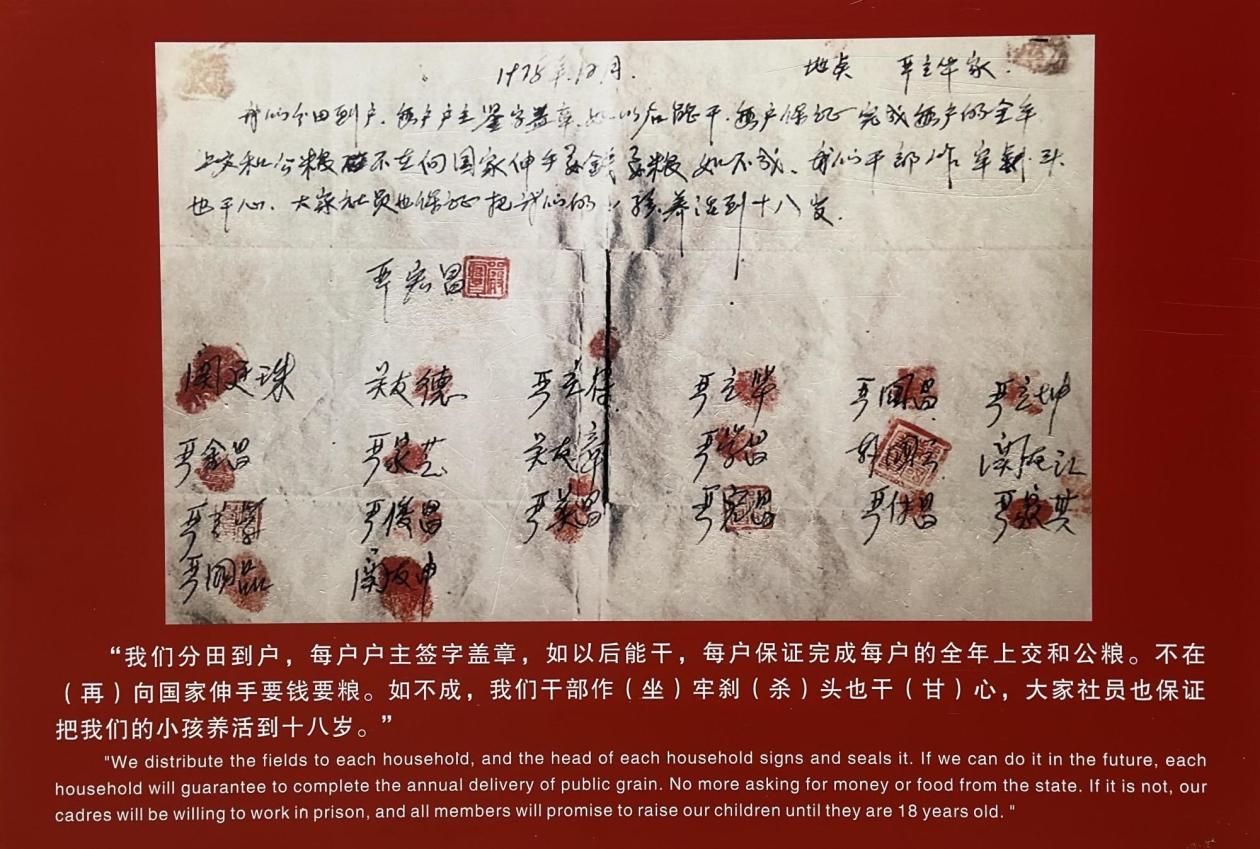 1978年.12月. 地点 严立华家.
我们分田到户.每户户主签字盖章.如以后能干.每户保证完成每户的全年
上交和公粮 不在向国家伸手要钱要粮 如不成.我们干部作牢刹头
也干心.大家社员也保证把我们的小孩养活到十八岁.
严宏昌
关友德 严立华 严国昌 严立坤
严金昌 严家芝 关友章 严学昌 韩国云
严俊昌 严美昌 严宏昌 严付昌 严家其
严国品 关友申
“我们分田到户，每户户主签字盖章，如以后能干，每户保证完成每户的全年上交和公粮。不在
（再）向国家伸手要钱要粮。如不成，我们干部作（坐）牢刹（杀）头也干（甘）心，大家社员也保证
把我们的小孩养活到十八岁。”
"We distribute the fields to each household, and the head of each household signs and seals it. If we can do it in the future, each
household will guarantee to complete the annual delivery of public grain. No more asking for money or food from the state. If it is not, our
cadres will be willing to work in prison, and all members will promise to raise our children until they are 18 years old. "